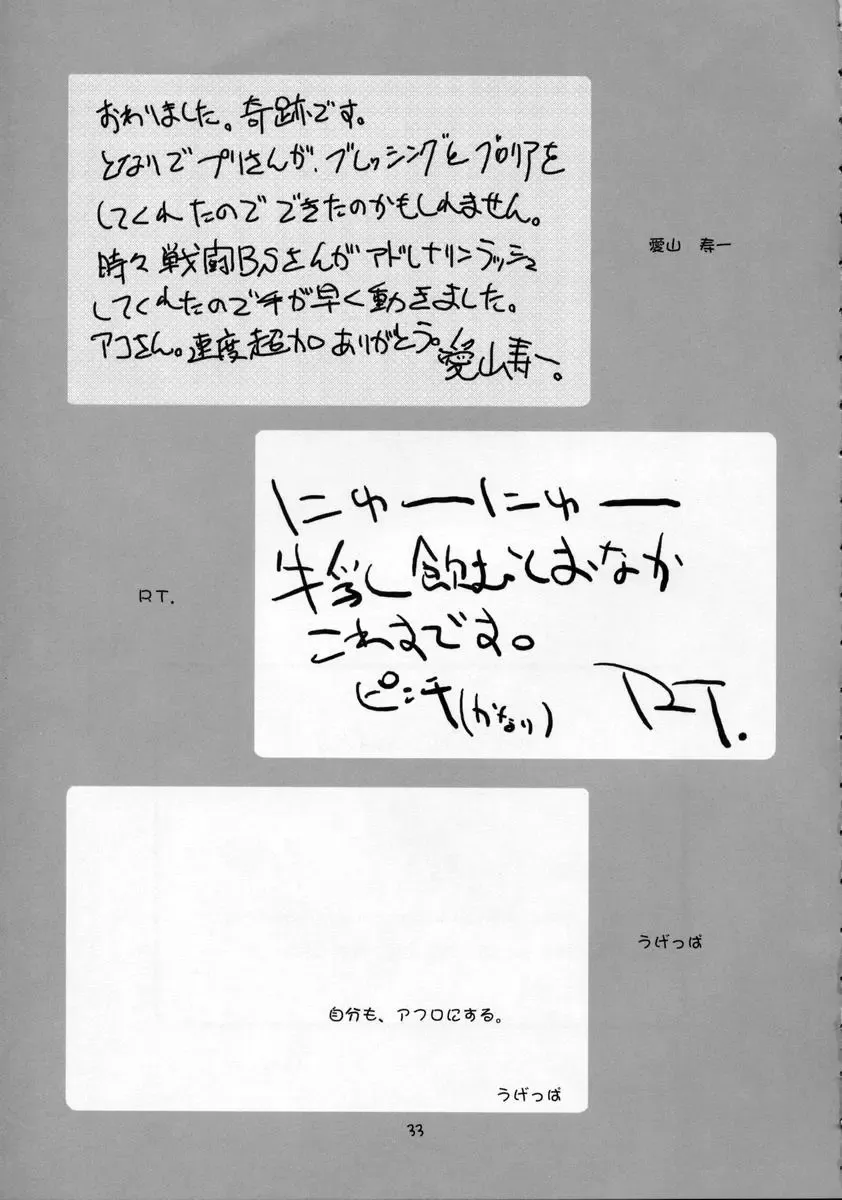 おわりました。奇跡です。
となりでプリさんが、ブレッシングとグロリアを
してくれたのでできたのかもしれません。
時々戦闘BSさんがアドレナリンラッシュ
してくれたので手が早く動きました。
アコさん。速度超加ありがとう。
愛山寿一。
愛山 寿一
にゅーにゅー
牛乳飲むとおなか
こわすです。
ピンチ(かなり)
RT.
RT.
うげっぱ
自分も、アフロにする。
うげっぱ
33